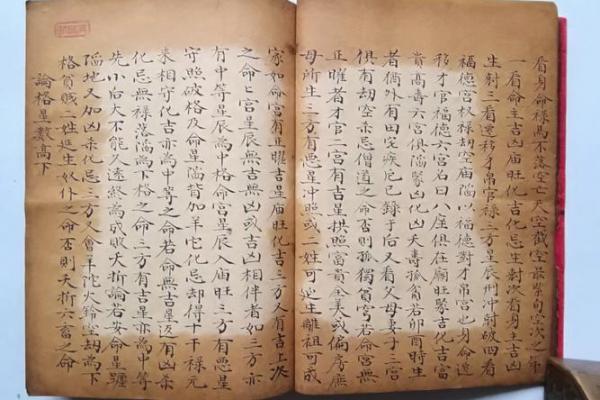 看身命祿馬不落空亡天空截空最緊旬空次之第
一看命主吉凶庙旺化吉化忌生對次看身主吉凶
生對三看遷移才帛官祿三方星辰刑冲尅破四看
福德宮权祿劫空庙陷以福德對才帛宮也身命遷
移才官福德六宮名曰八座俱在庙旺聚吉化吉富
貴高壽六宮俱陷聚凶化凶夭壽孤貧若卯酉時生
者猶外有田宅疾厄已錄于后又看父母妻子三宮
俱有劫空杀忌僧道之命否則孤獨貧窮若命宮無
正曜者才官二宮有吉星拱照富貴全美或偏房庶
母所生三方有惡星冲照或二姓可延生離祖可成
家如命宮有正曜吉星庙旺化吉三方又有吉上次
之命七宮星辰無吉無凶或吉凶相伴者如三方亦
有中等星辰為中格命宮星辰入庙旺三方有惡星
守照破格及命星陷加羊陀化忌却得十干祿元
來相守化吉亦為中等之命若命無吉星返有凶杀
化忌無祿落陷為下格之命三方有吉星亦為中等
先小后大不能久遠終為成敗夭折論若安命星躔
陷地又加凶杀化忌三方又會羊陀火鈴空劫為下
格貧賤二姓延生奴仆之命否則夭折六畜之命
論格星數高下